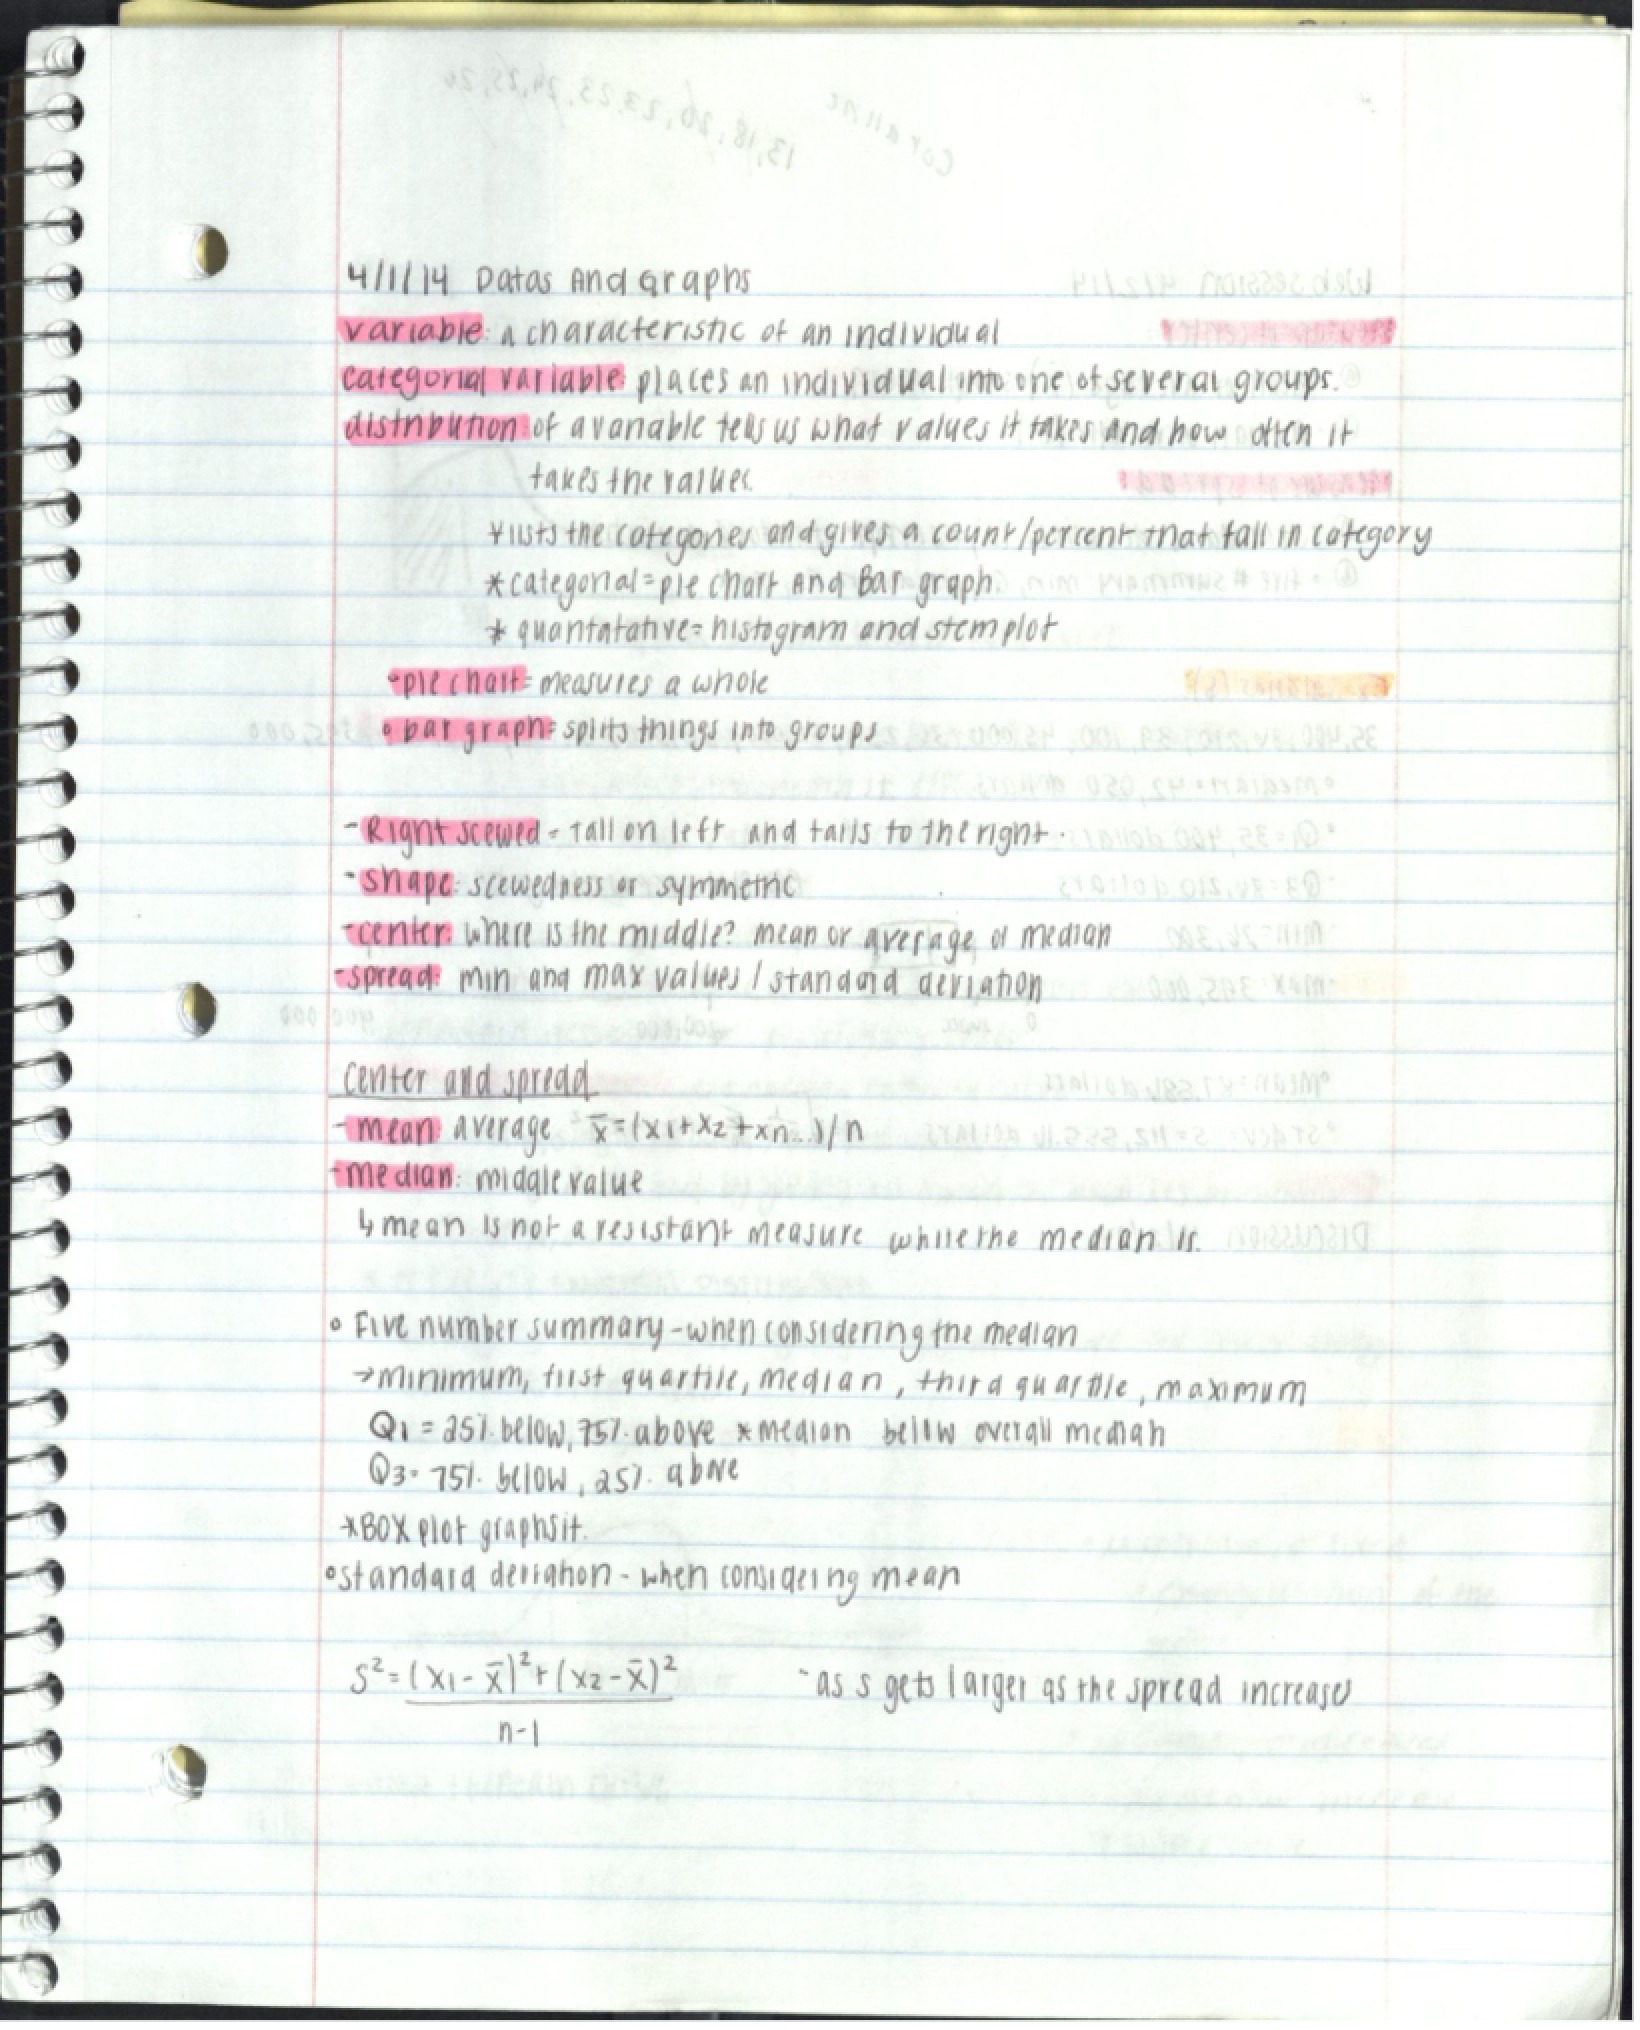 4/1/14 Datas And Graphs
variable: a characteristic of an individual
categorial variable: places an individual into one of several groups.
distribution: of a variable tells us what values it takes and how often it
takes the values.
*lists the categories and gives a count/percent that fall in category
*categorial = pie chart And Bar graph.
* quantatative = histogram and stemplot
•pie chart = measures a whole
• bar graph = splits things into groups
- Right scewed = tall on left and tails to the right.
- shape: scewedness or symmetric
- center: where is the middle? mean or average or median
- spread: min and max values / standard deviation
center and spread
- mean average x̄ = (x1+x2+xn...)/n
- median: middle value
↳ mean is not a resistant measure while the median is.
• Five number summary - when considering the median
→ minimum, first quartile, median, third quartile, maximum
Q1 = 25% below, 75% above *median below overall median
Q3 = 75% below, 25% above
*BOX plot graphs it.
• standard deviation - when considering mean
S² = (x1 - x̄)² + (x2 - x̄)²
n-1
- as s gets larger as the spread increases